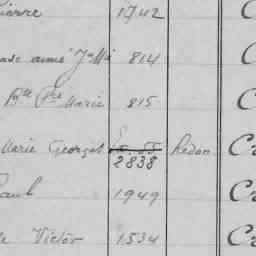 Pierre 1742 C
Aimé Jn Mie 814 C
Bte Pre Marie 815 C
Marie Georges 2838 Redon C
Paul 1949 C
Victor 1534 C